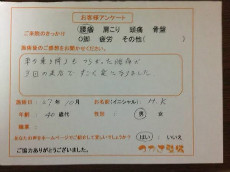 お客様アンケート
ご来院のきっかけ
腰痛 肩こり 頭痛 骨盤
O脚 疲労 その他( )
施術後のご感想をお聞かせください。
車を乗り降りも つらかった腰痛が
3回の来店で すごく楽になりました
施術日: 27年 10月
お名前(イニシャル): H.K
年齢: 40歳代
性別: 男 女
職業:
あなたのお声をホームページでご紹介しても宜しいでしょうか? はい いいえ
ご協力ありがとうございました。